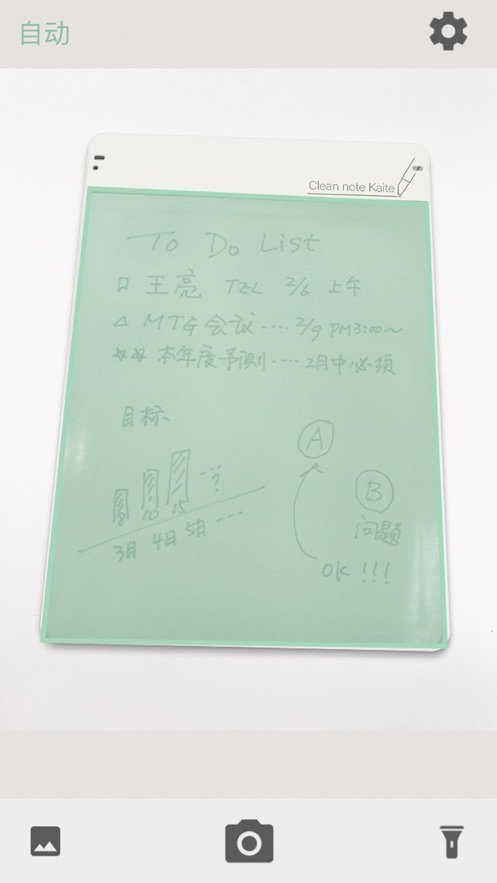 自动
Clean note Kaite
To Do List
口 王亮 TEL 2/6 上午
△ MTG 会议 .... 2/9 PM 3:00~
☆☆ 本年度予则 .... 2月中必须
目标、
... ?
8 10 15
3月 4月 5月 ...
A
B
问题
OK !!!